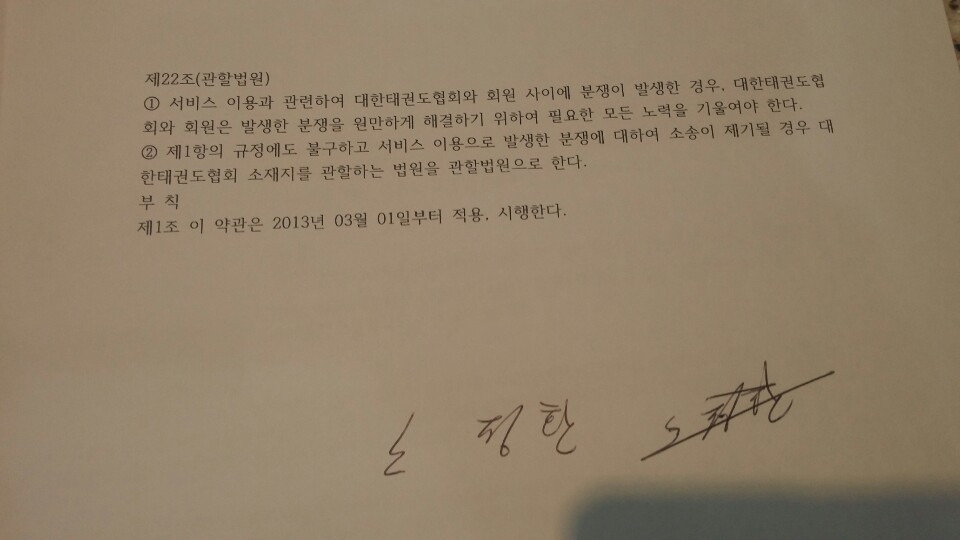 제22조(관할법원)
① 서비스 이용과 관련하여 대한태권도협회와 회원 사이에 분쟁이 발생한 경우, 대한태권도협
회와 회원은 발생한 분쟁을 원만하게 해결하기 위하여 필요한 모든 노력을 기울여야 한다.
② 제1항의 규정에도 불구하고 서비스 이용으로 발생한 분쟁에 대하여 소송이 제기될 경우 대
한태권도협회 소재지를 관할하는 법원을 관할법원으로 한다.
부 칙
제1조 이 약관은 2013년 03월 01일부터 적용, 시행한다.
정한